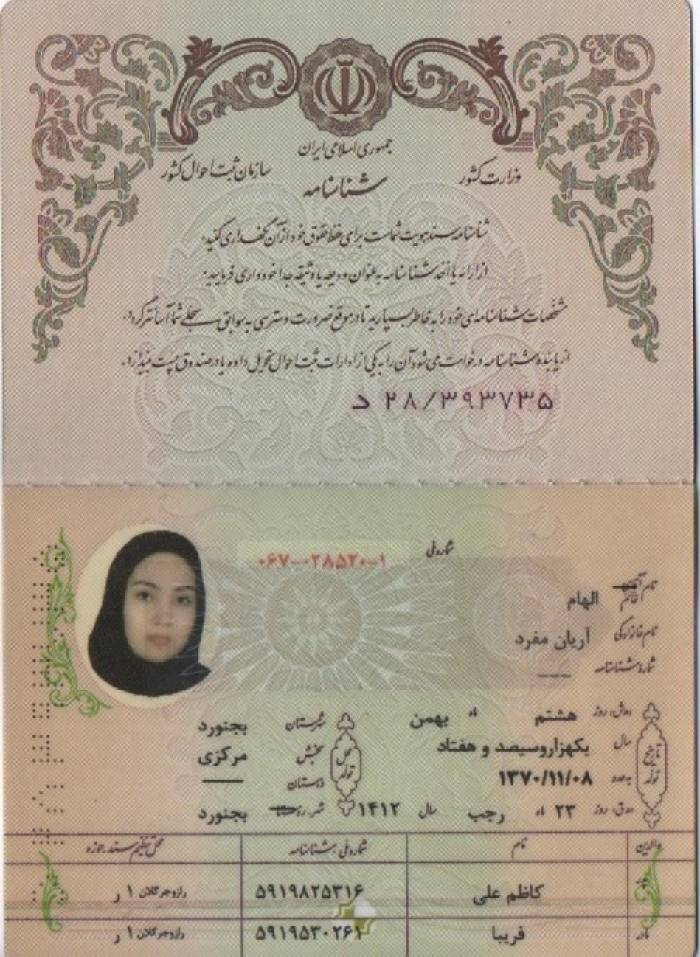 جمهوری اسلامی ایران
وزارت کشور
شناسنامه
سازمان ثبت احوال کشور
شناسنامه سند هویت شماست برای حفظ حقوق خود از آن نگهداری کنید.
از ارائه یا اخذ شناسنامه به عنوان ودیعه یا وثیقه جدا خودداری فرمایید.
مشخصات شناسنامه‌ای خود را به خاطر بسپارید تا در موقع ضرورت دسترسی به سوابق سجلی شما آسانتر گردد.
از یابنده شناسنامه درخواست می شود آن را به یکی از ادارات ثبت احوال تحویل داده یا در صندوق پست بیندازد.
د ۲۸/۳۹۳۷۳۵
شماره ملی ۰۶۷-۰۲۸۵۲۰-۱
نام آقای خانم الهام
نام خانوادگی آریان مفرد
شماره شناسنامه ---
تاریخ تولد
ه‍.ش: روز هشتم ماه بهمن
سال یکهزاروسیصد و هفتاد
به عدد ۱۳۷۰/۱۱/۰۸
ه‍.ق: روز ۲۳ ماه رجب سال ۱۴۱۲
محل تولد
شهرستان بجنورد
بخش مرکزی
دهستان ——
شهر روستا بجنورد
والدین نام شماره ملی / شناسنامه محل تنظیم سند حوزه
پدر کاظم علی ۵۹۱۹۸۲۵۳۱۶ رازوجرگلان ۱ ر
مادر فریبا ۵۹۱۹۵۳۰۲۶۱ رازوجرگلان ۱ ر